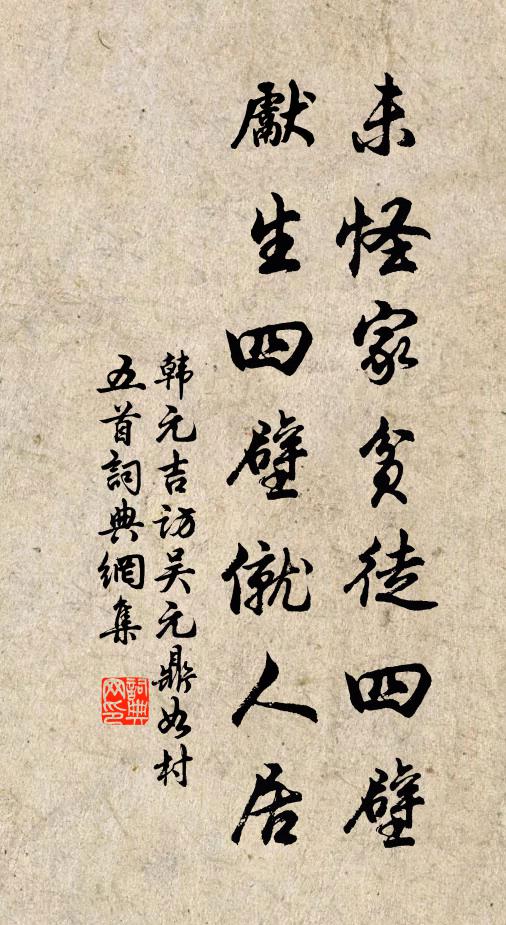 未怪家贫徒四壁
献生四壁僦人居
韩元吉访吴元鼎如村
五首詞典網集
詞典網印